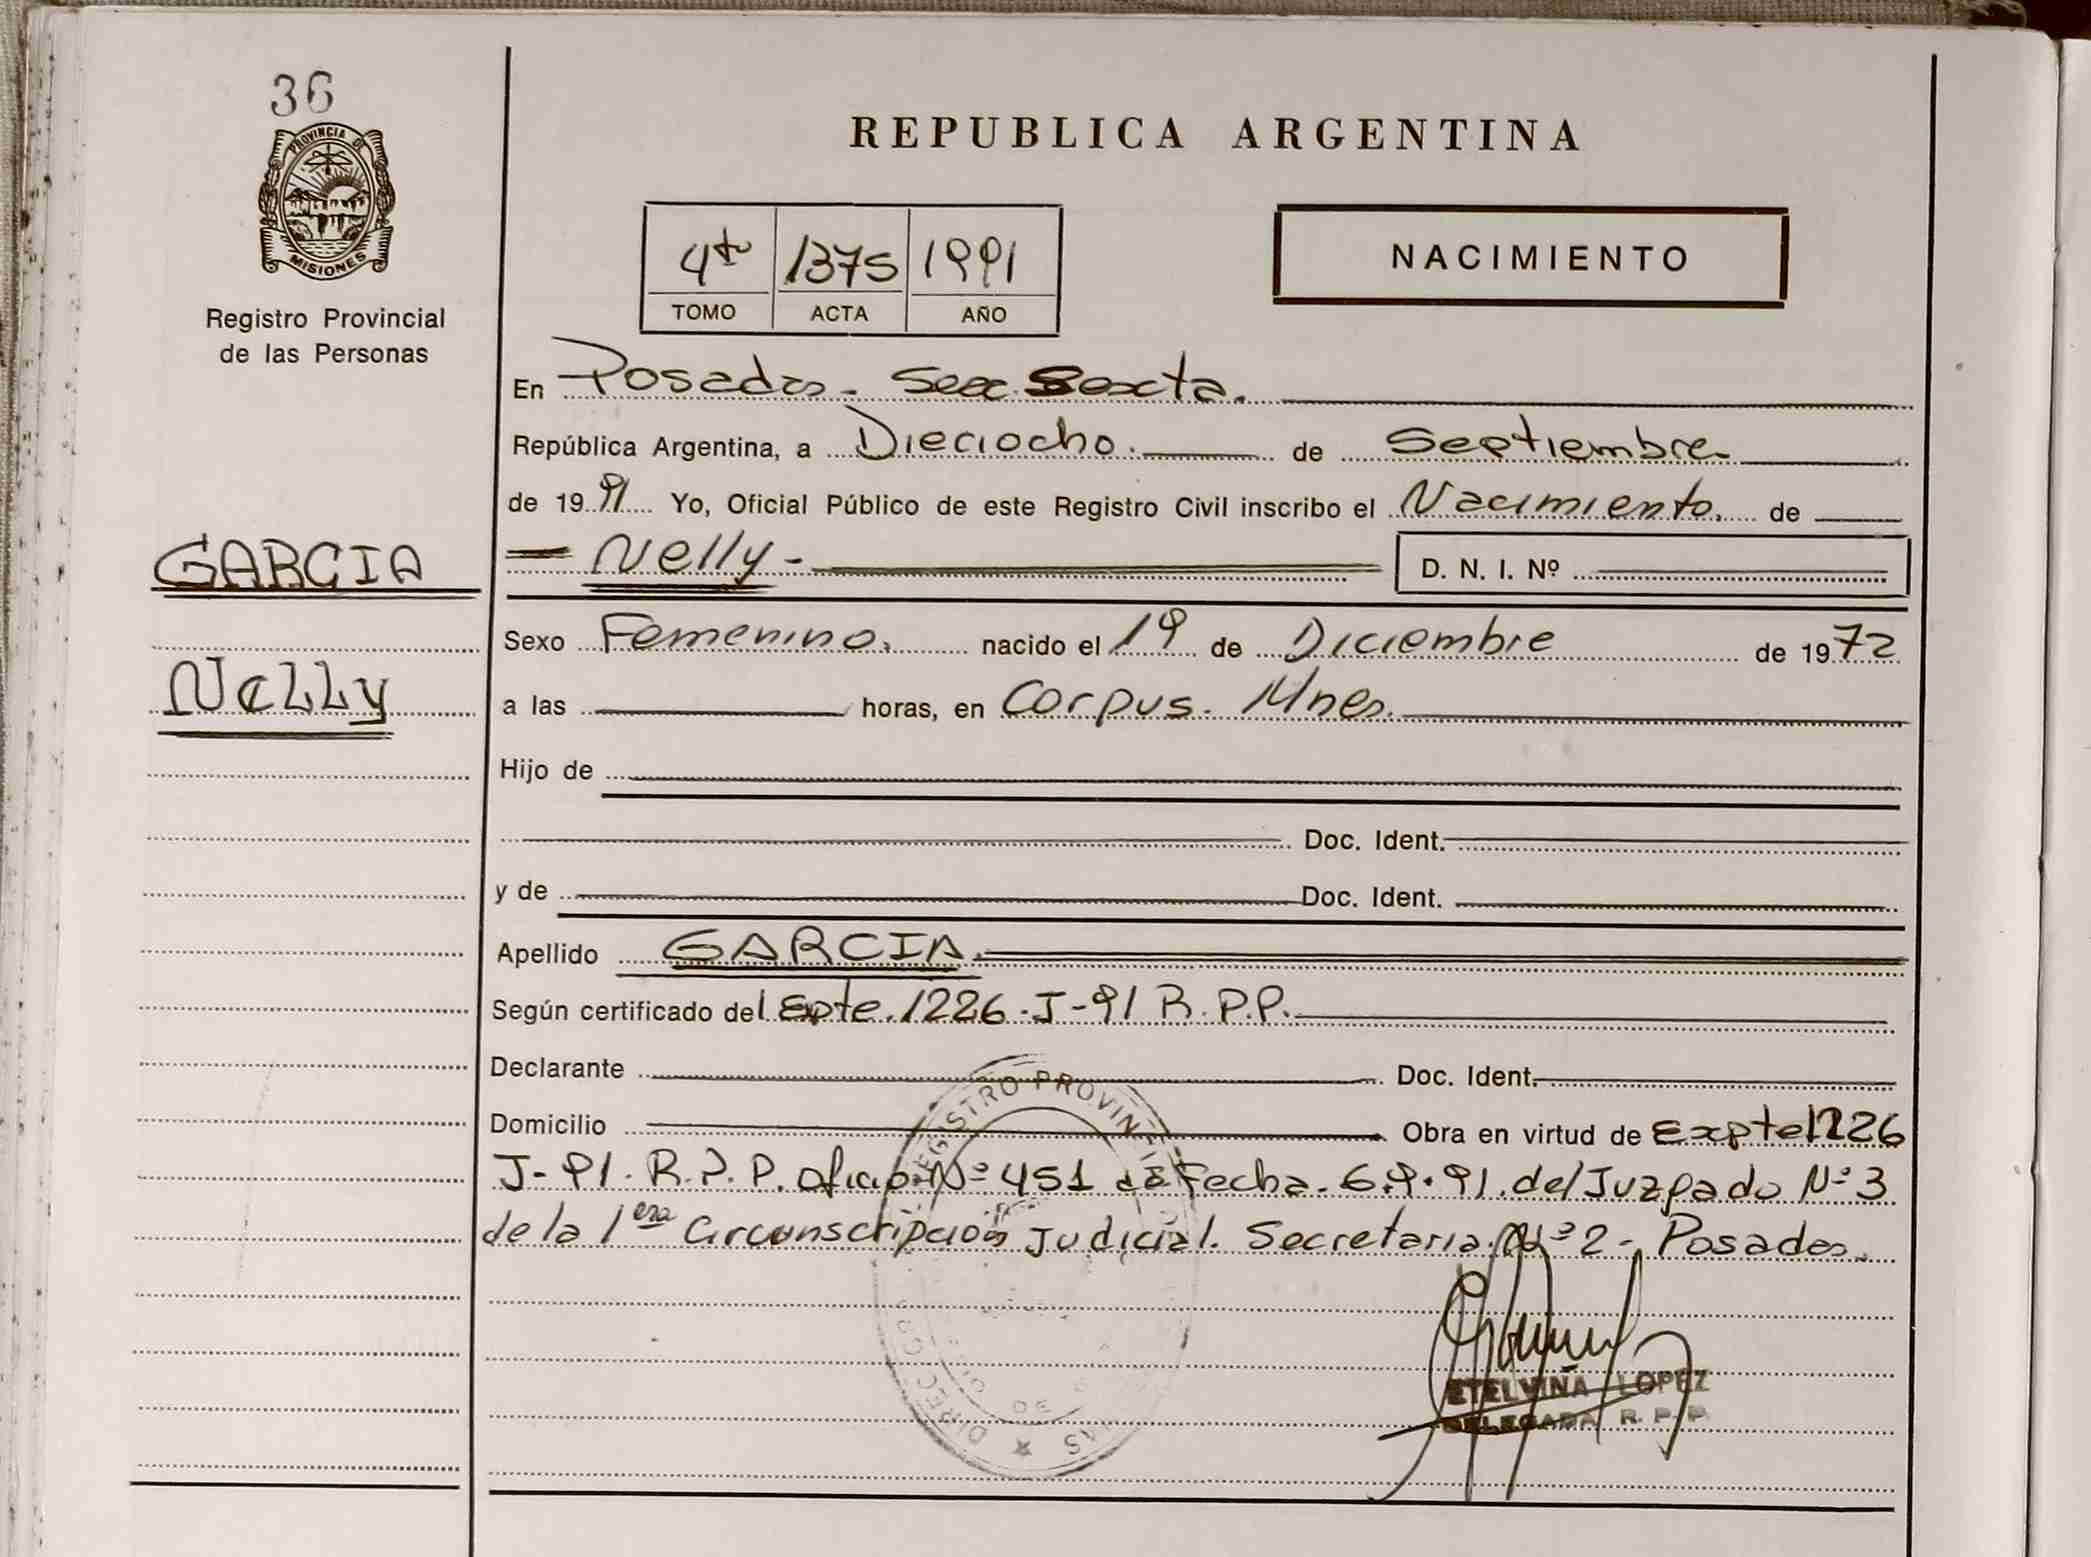 36
PROVINCIA D
MISIONES
Registro Provincial
de las Personas
REPUBLICA ARGENTINA
4to 1375 1991
TOMO ACTA AÑO
NACIMIENTO
En Posadas. Secc. Sexta.
República Argentina, a Dieciocho. de Septiembre
de 1991 Yo, Oficial Público de este Registro Civil inscribo el Nacimiento. de
GARCIA
Nelly - D. N. I. Nº
Sexo Femenino. nacido el 19 de Diciembre de 1972
Nelly
a las horas, en Corpus. Mnes.
Hijo de
Doc. Ident.
y de Doc. Ident.
Apellido GARCIA.
Según certificado del Expte. 1226. J-91 R.P.P.
Declarante Doc. Ident.
Domicilio Obra en virtud de Expte 1226
J-91. R.P.P. Oficio Nº 451 de Fecha 6.9.91. del Juzgado Nº 3
de la 1era Circunscripcion Judicial. Secretaria Nº 2 - Posadas.
REGISTRO PROVIN
ETELVINA LOPEZ
DELEGADA R. P. P.